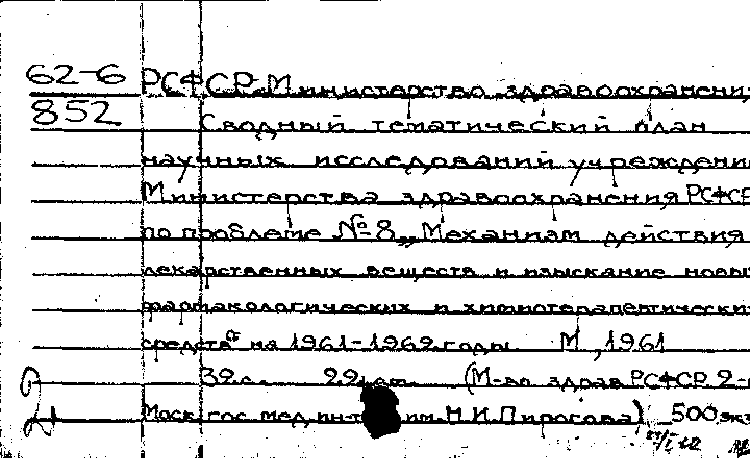 62-6 РСФСР. Министерство здравоохранения
852 Сводный тематический план
научных исследований учреждений
Министерства здравоохранения РСФСР
по проблеме №8 „Механизм действия
лекарственных веществ и изыскание новых
фармакологических и химиотерапевтических
средств" на 1961-1962 годы М, 1961
39с. 22см. (М-во здрав РСФСР 2-
Моск гос мед ин-т им. Н.И. Пирогова) 500 экз